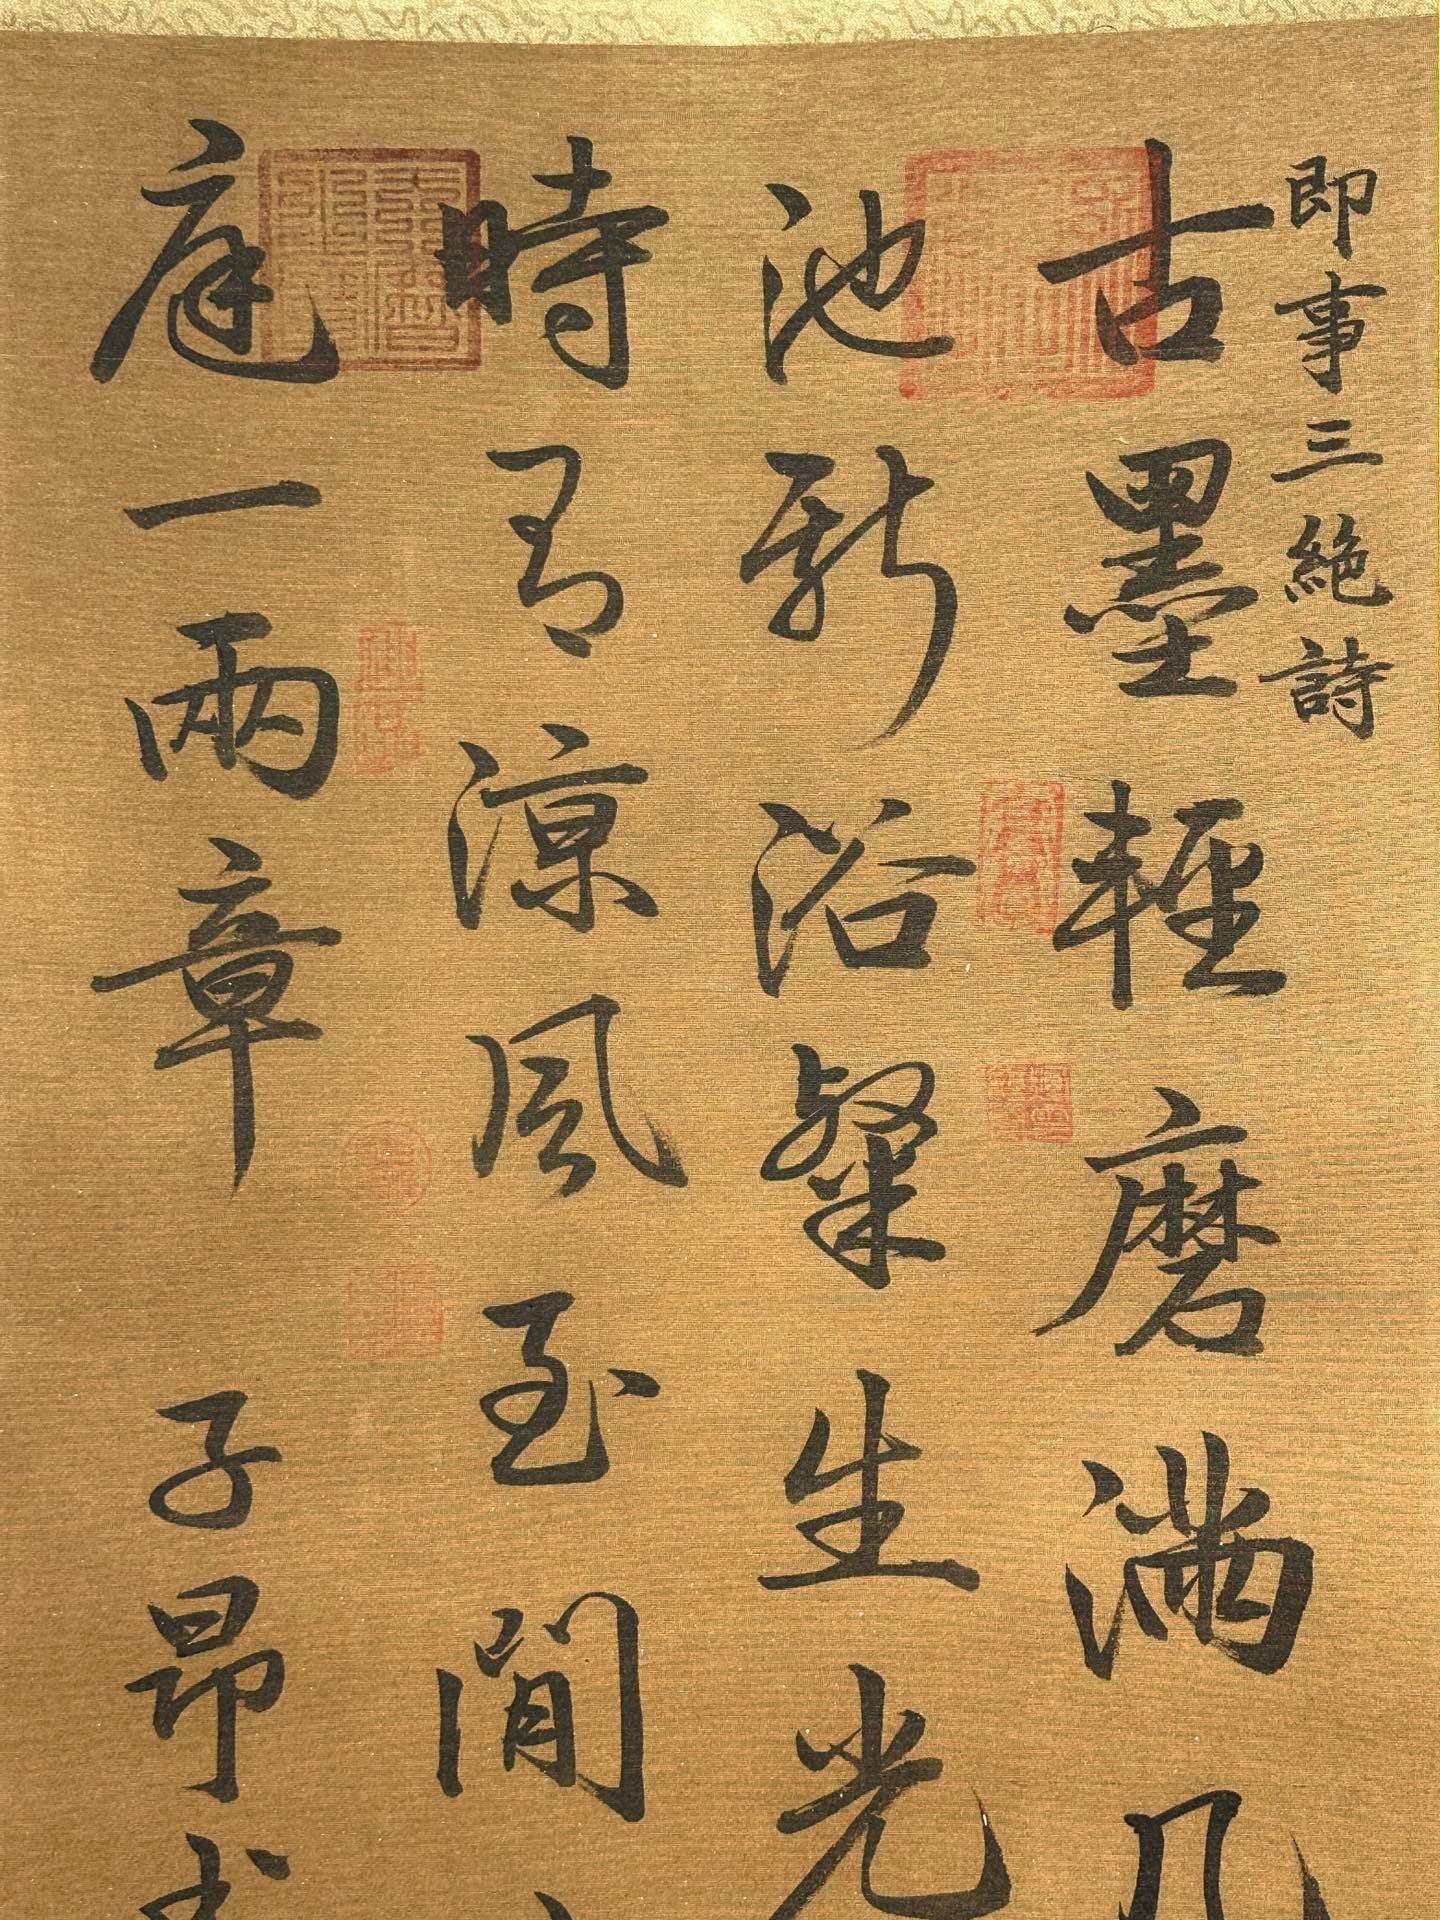 即事三絶詩
古墨輕磨滿几
池新浴粲生光
時有涼風至閒
庭一兩章 子昂書